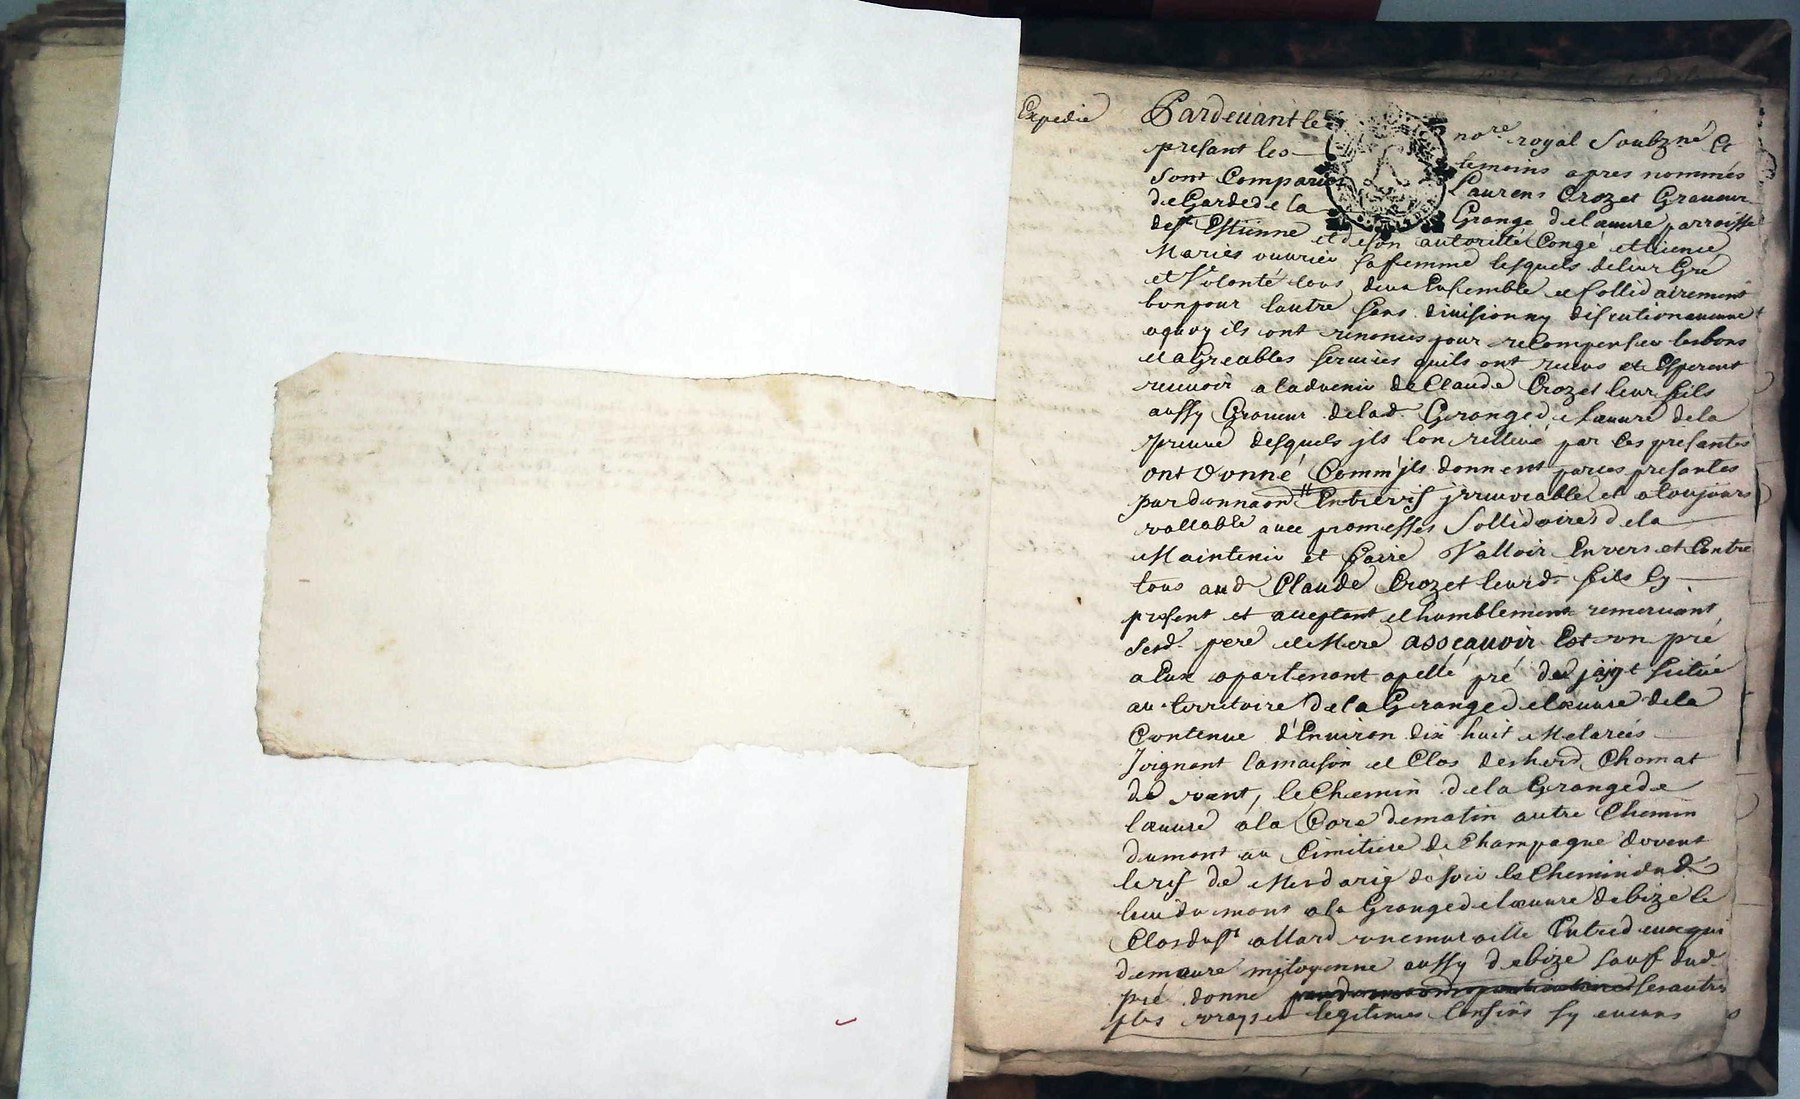 Expedié
Pardevant le nore royal Soubzné Et
presant les temoins apres nommés
Sont Comparus Laurens Crozet Graveur
de Garde de la Grange delauure parroisse
de st Estienne et de son autorité Congé et licence
Maries ouvrier sa femme lesquels de leur Gré
et Volonté tous deux Ensemble et sollidairement
bun pour lautre sans division ny discution aucune
aquoy ils ont renoncés pour recompenser les bons
et aGreables services quils ont receus et Esperent
recevoir a ladvenir de Claude Crozet leur fils
aussy Graveur delad. Grange de lauure de la
preuve desquels jls lon relleué par ces presantes
ont Donné Comm' jls donnent par ces presantes
par donnaon Entrevif jrrevocable et a toujours
vallable avec promesses Sollidaires de la
Maintenir et faire Valloir Envers et Contre
tous aud Claude Crozet leurd. fils Cy
present et acceptant et humblement remerciant
sesd. pere et Mere assçauoir Est un pré
a Eux apartenant apellé pré du situé
au territoire de la Grange de lœuure de la
Contenue d'Environ dix huit Metarées
Joignant la maison et Clos des herd. Chomat
de vent, le Chemin de la Grange de
lauure a la Core de matin autre Chemin
dumont au Cimitiere de Champagne dovent
le rif de Merdarie de soir le Chemin dud.
lieu du mont a la Grange de lœuure de bize le
Clos du sr allard une muraille Entred eux qui
demeure mitoyenne aussy de bize sauf dud.
pré donné ses autres
plus vrays et legitimes Confins sy aucuns